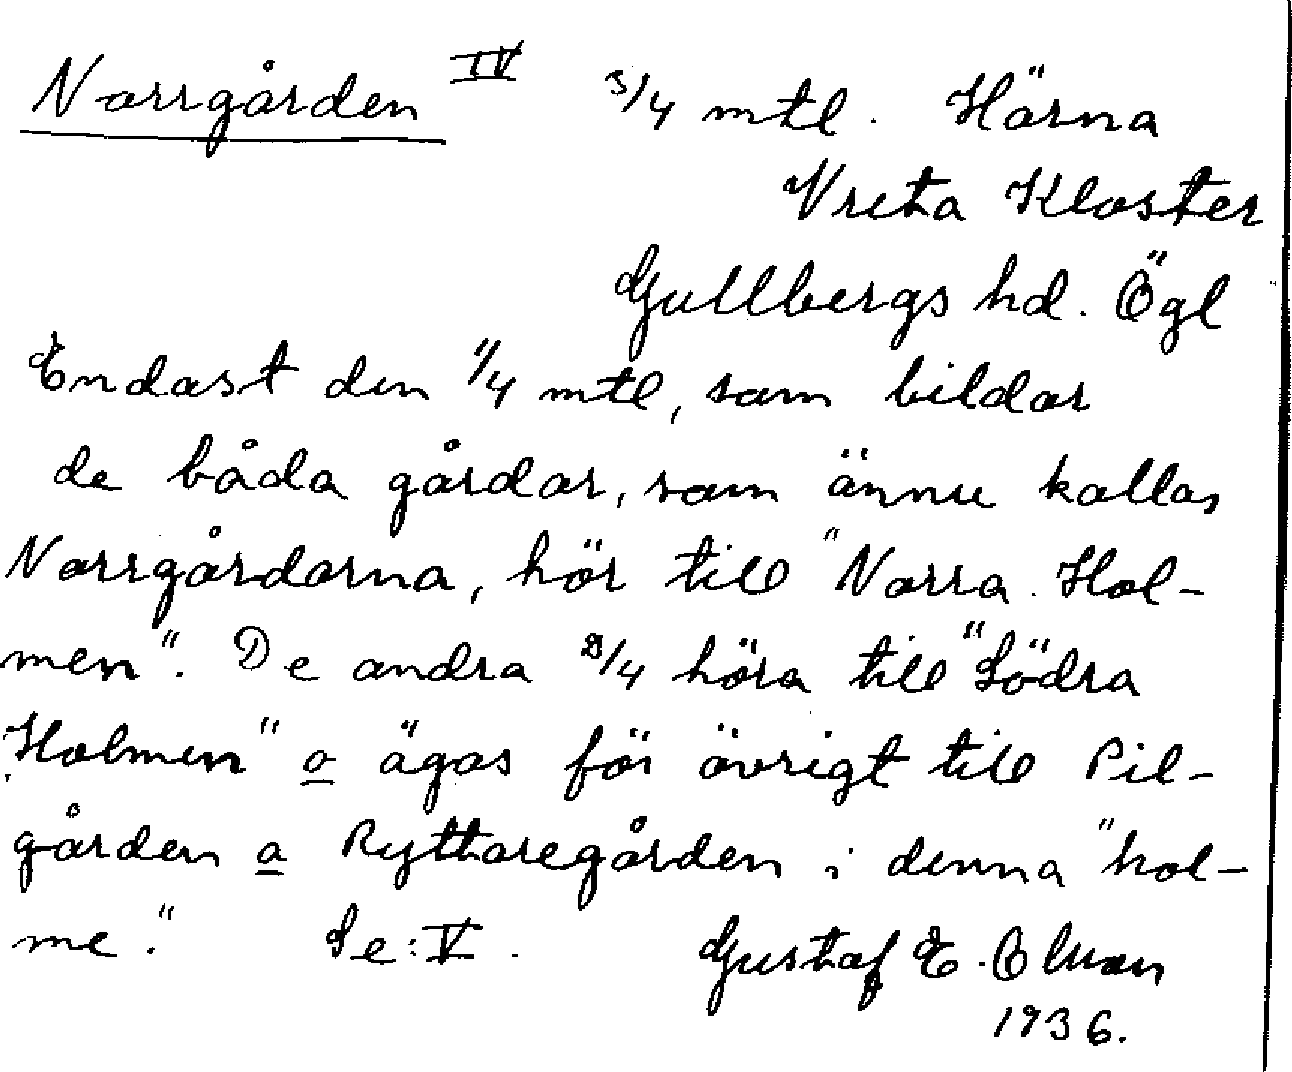 Norrgården IV 3/4 mtl. Härna
Vreta Kloster
Gullbergs hd. Ögl
Endast den 1/4 mtl, som bildar
de båda gårdar, som ännu kallas
Norrgårdarna, hör till "Norra Hol-
men". De andra 2/4 höra till "Södra
Holmen" o ägas för övrigt till Pil-
gården o Ryttaregården i denna "hol-
me". Se: V.
Gustaf E.
1936.